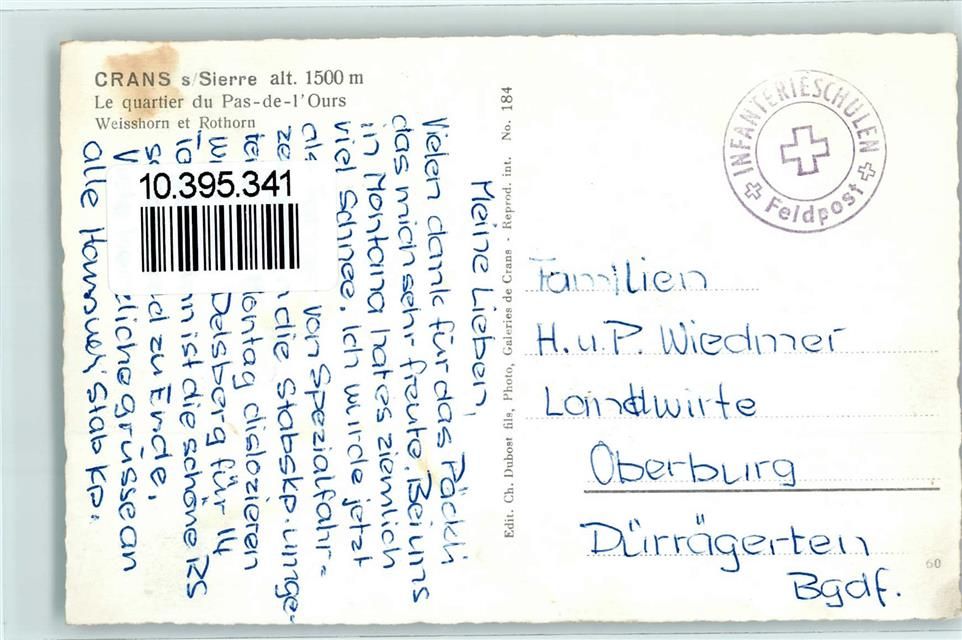 CRANS s/Sierre alt. 1500 m
Le quartier du Pas-de-l'Ours
Weisshorn et Rothorn
10.395.341
Meine Lieben,
Vielen dank für das Päckli
das mich sehr freute. Bei uns
in Montana hat es ziemlich
viel Schnee. Ich wurde jetzt
als von Spezialfahr=
ze die Stabskp. umge-
te ontag dislozieren
Delsberg für 14
ist die schöne RS
d zu Ende.
liche grüsse an
alle Hansruei Stab Kp.
Edit. Ch. Dubost fils, Photo, Galeries de Crans - Reprod. int. No. 184
INFANTERIESCHULEN
Feldpost
Familien
H. u. P. Wiedmer
Landwirte
Oberburg
Dürrägerten
Bgdf.
60